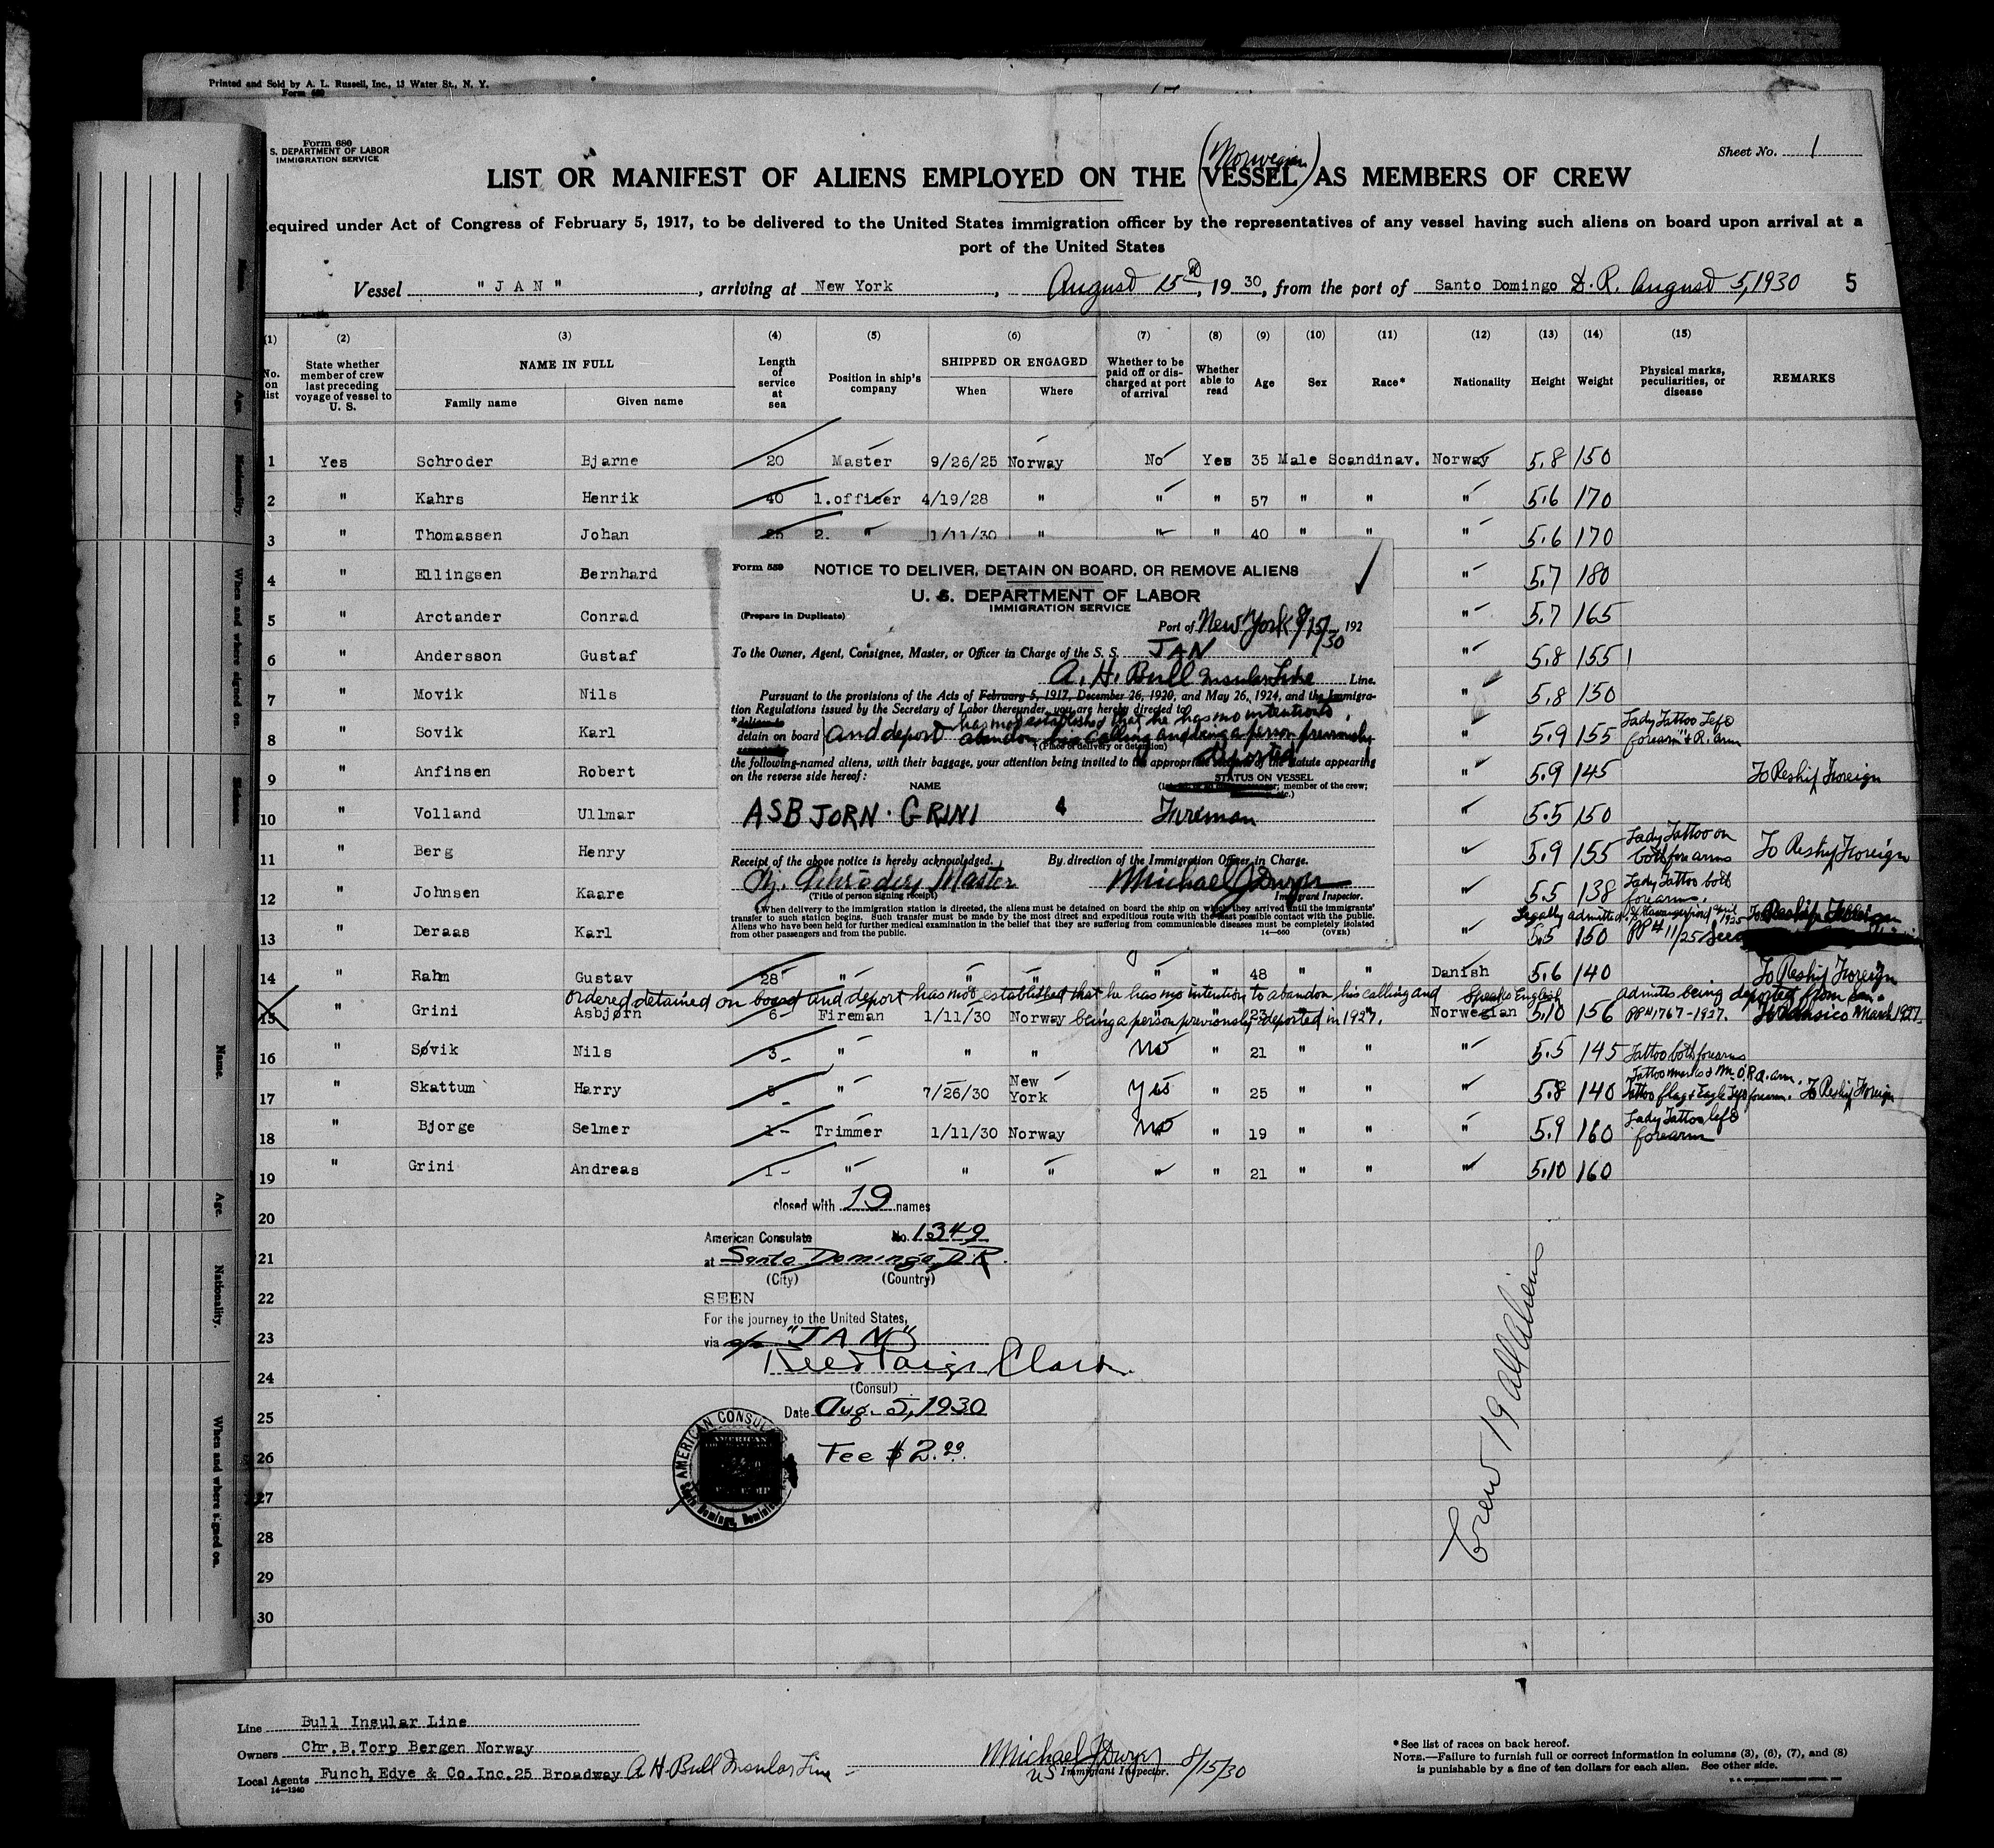 Printed and Sold by A. L. Russell, Inc., 13 Water St., N. Y.
Form 680
Form 680
S. DEPARTMENT OF LABOR
IMMIGRATION SERVICE
Sheet No. 1
(Norwegian)
LIST OR MANIFEST OF ALIENS EMPLOYED ON THE (VESSEL) AS MEMBERS OF CREW
equired under Act of Congress of February 5, 1917, to be delivered to the United States immigration officer by the representatives of any vessel having such aliens on board upon arrival at a
port of the United States
Vessel "JAN", arriving at New York, August 15th, 1930, from the port of Santo Domingo D.R. August 5, 1930 5
(1) (2) (3) (4) (5) (6) (7) (8) (9) (10) (11) (12) (13) (14) (15)
No. on list
State whether member of crew last preceding voyage of vessel to U. S.
NAME IN FULL
Family name Given name
Length of service at sea
Position in ship's company
SHIPPED OR ENGAGED
When Where
Whether to be paid off or discharged at port of arrival
Whether able to read
Age Sex Race* Nationality Height Weight
Physical marks, peculiarities, or disease
REMARKS
1 Yes Schroder Bjarne 20 Master 9/26/25 Norway No Yes 35 Male Scandinav. Norway 5.8 150
2 " Kahrs Henrik 40 1.officer 4/19/28 " " " 57 " " " 5.6 170
3 " Thomassen Johan 25 2. " 1/11/30 " " " 40 " " " 5.6 170
4 " Ellingsen Bernhard " 5.7 180
5 " Arctander Conrad " 5.7 165
6 " Andersson Gustaf " 5.8 155
7 " Movik Nils " 5.8 150
8 " Sovik Karl " 5.9 155 Lady Tattoo Left forearm & R. arm
9 " Anfinsen Robert " 5.9 145 To Reship Foreign
10 " Volland Ullmar " 5.5 150
11 " Berg Henry " 5.9 155 Lady Tattoo on both forearms To Reship Foreign
12 " Johnsen Kaare " 5.5 138 Lady Tattoo both forearms.
Legally admitted
13 " Deraas Karl " 5.5 150 To Reship Foreign
14 " Rahm Gustav 28 " " " " " 48 " " Danish 5.6 140 To Reship Foreign
Ordered detained on board and deport has not established that he has no intention to abandon his calling and Speaks English admits being deported from San
15 " Grini Asbjørn 6 Fireman 1/11/30 Norway being a person previously deported in 1927. 23 " Norwegian 5.10 156 March 1927.
16 " Søvik Nils 3 " " " No " 21 " " " 5.5 145 Tattoo both forearms
17 " Skattum Harry 8 " 7/26/30 New York Yes " 25 " " " 5.8 140 Tattoo flag & Eagle Left forearm. To Reship Foreign
18 " Bjorge Selmer 1 Trimmer 1/11/30 Norway No " 19 " " " 5.9 160 Lady Tattoo left forearm
19 " Grini Andreas 1 " " " " " 21 " " " 5.10 160
20
21
22
23
24
25
26
27
28
29
30
Form 559
NOTICE TO DELIVER, DETAIN ON BOARD, OR REMOVE ALIENS
U. S. DEPARTMENT OF LABOR
IMMIGRATION SERVICE
(Prepare in Duplicate)
Port of New York 8/15/30 192
To the Owner, Agent, Consignee, Master, or Officer in Charge of the S. S. JAN
A. H. Bull Insular Line Line.
Pursuant to the provisions of the Acts of February 5, 1917, December 26, 1920, and May 26, 1924, and the Immigra-
tion Regulations issued by the Secretary of Labor thereunder, you are hereby directed to
*deliver to
has not established that he has no intention to
detain on board and deport abandon his calling and being a person previously
†(Place of delivery or detention) deported
the following-named aliens, with their baggage, your attention being invited to the appropriate of the statute appearing
on the reverse side hereof:
STATUS ON VESSEL
NAME
member of the crew; etc.)
ASBJORN GRINI Fireman
Receipt of the above notice is hereby acknowledged. By direction of the Immigration Officer in Charge.
Bj. Schröder Master Michael J Dwyer
(Title of person signing receipt) Immigrant Inspector.
When delivery to the immigration station is directed, the aliens must be detained on board the ship on which they arrived until the immigrants'
transfer to such station begins. Such transfer must be made by the most direct and expeditious route with the least possible contact with the public.
Aliens who have been held for further medical examination in the belief that they are suffering from communicable diseases must be completely isolated
from other passengers and from the public. 14—660 (OVER)
closed with 19 names
American Consulate No. 1349
at Santo Domingo, D.R.
(City) (Country)
SEEN
For the journey to the United States,
via s/s "JAN"
Reed Paige Clark
(Consul)
Date Aug. 5, 1930
Fee $2.00
AMERICAN CONSULATE
Crew 19 all aliens
Line Bull Insular Line
Owners Chr.B.Torp Bergen Norway
Local Agents Funch, Edye & Co.Inc. 25 Broadway A H Bull Insular Line
14—1240
Michael J Dwyer 8/15/30
US Immigrant Inspector.
*See list of races on back hereof.
NOTE.—Failure to furnish full or correct information in columns (3), (6), (7), and (8)
is punishable by a fine of ten dollars for each alien. See other side.
Name.
Age.
Nationality.
When and where signed on.
Age.
Nationality.
When and where signed on.